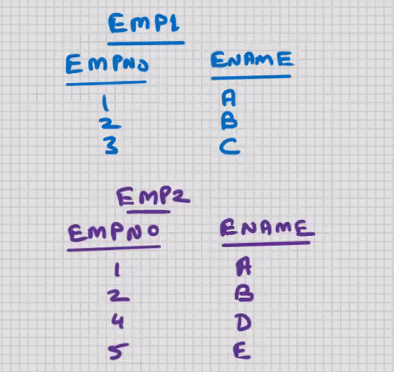 EMP1
EMPNO ENAME
1 A
2 B
3 C
EMP2
EMPNO ENAME
1 A
2 B
4 D
5 E